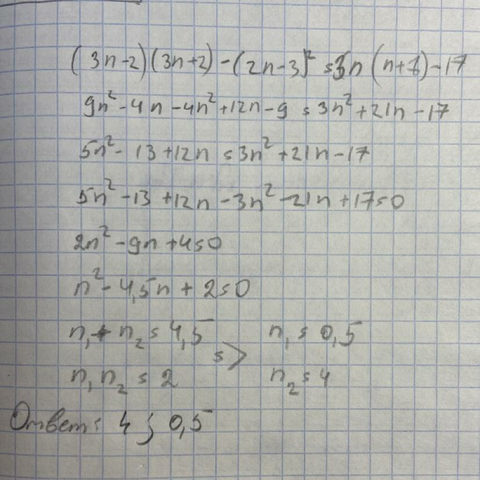 (3n-2)(3n+2)-(2n-3)² = 3n(n+7)-17
9n²-4n-4n²+12n-9 = 3n²+21n-17
5n²-13+12n = 3n²+21n-17
5n²-13+12n-3n²-21n+17=0
2n²-9n+4=0
n²-4,5n+2=0
n₁+n₂=4,5 => n₁=0,5
n₁n₂=2 n₂=4
Ответ: 4; 0,5